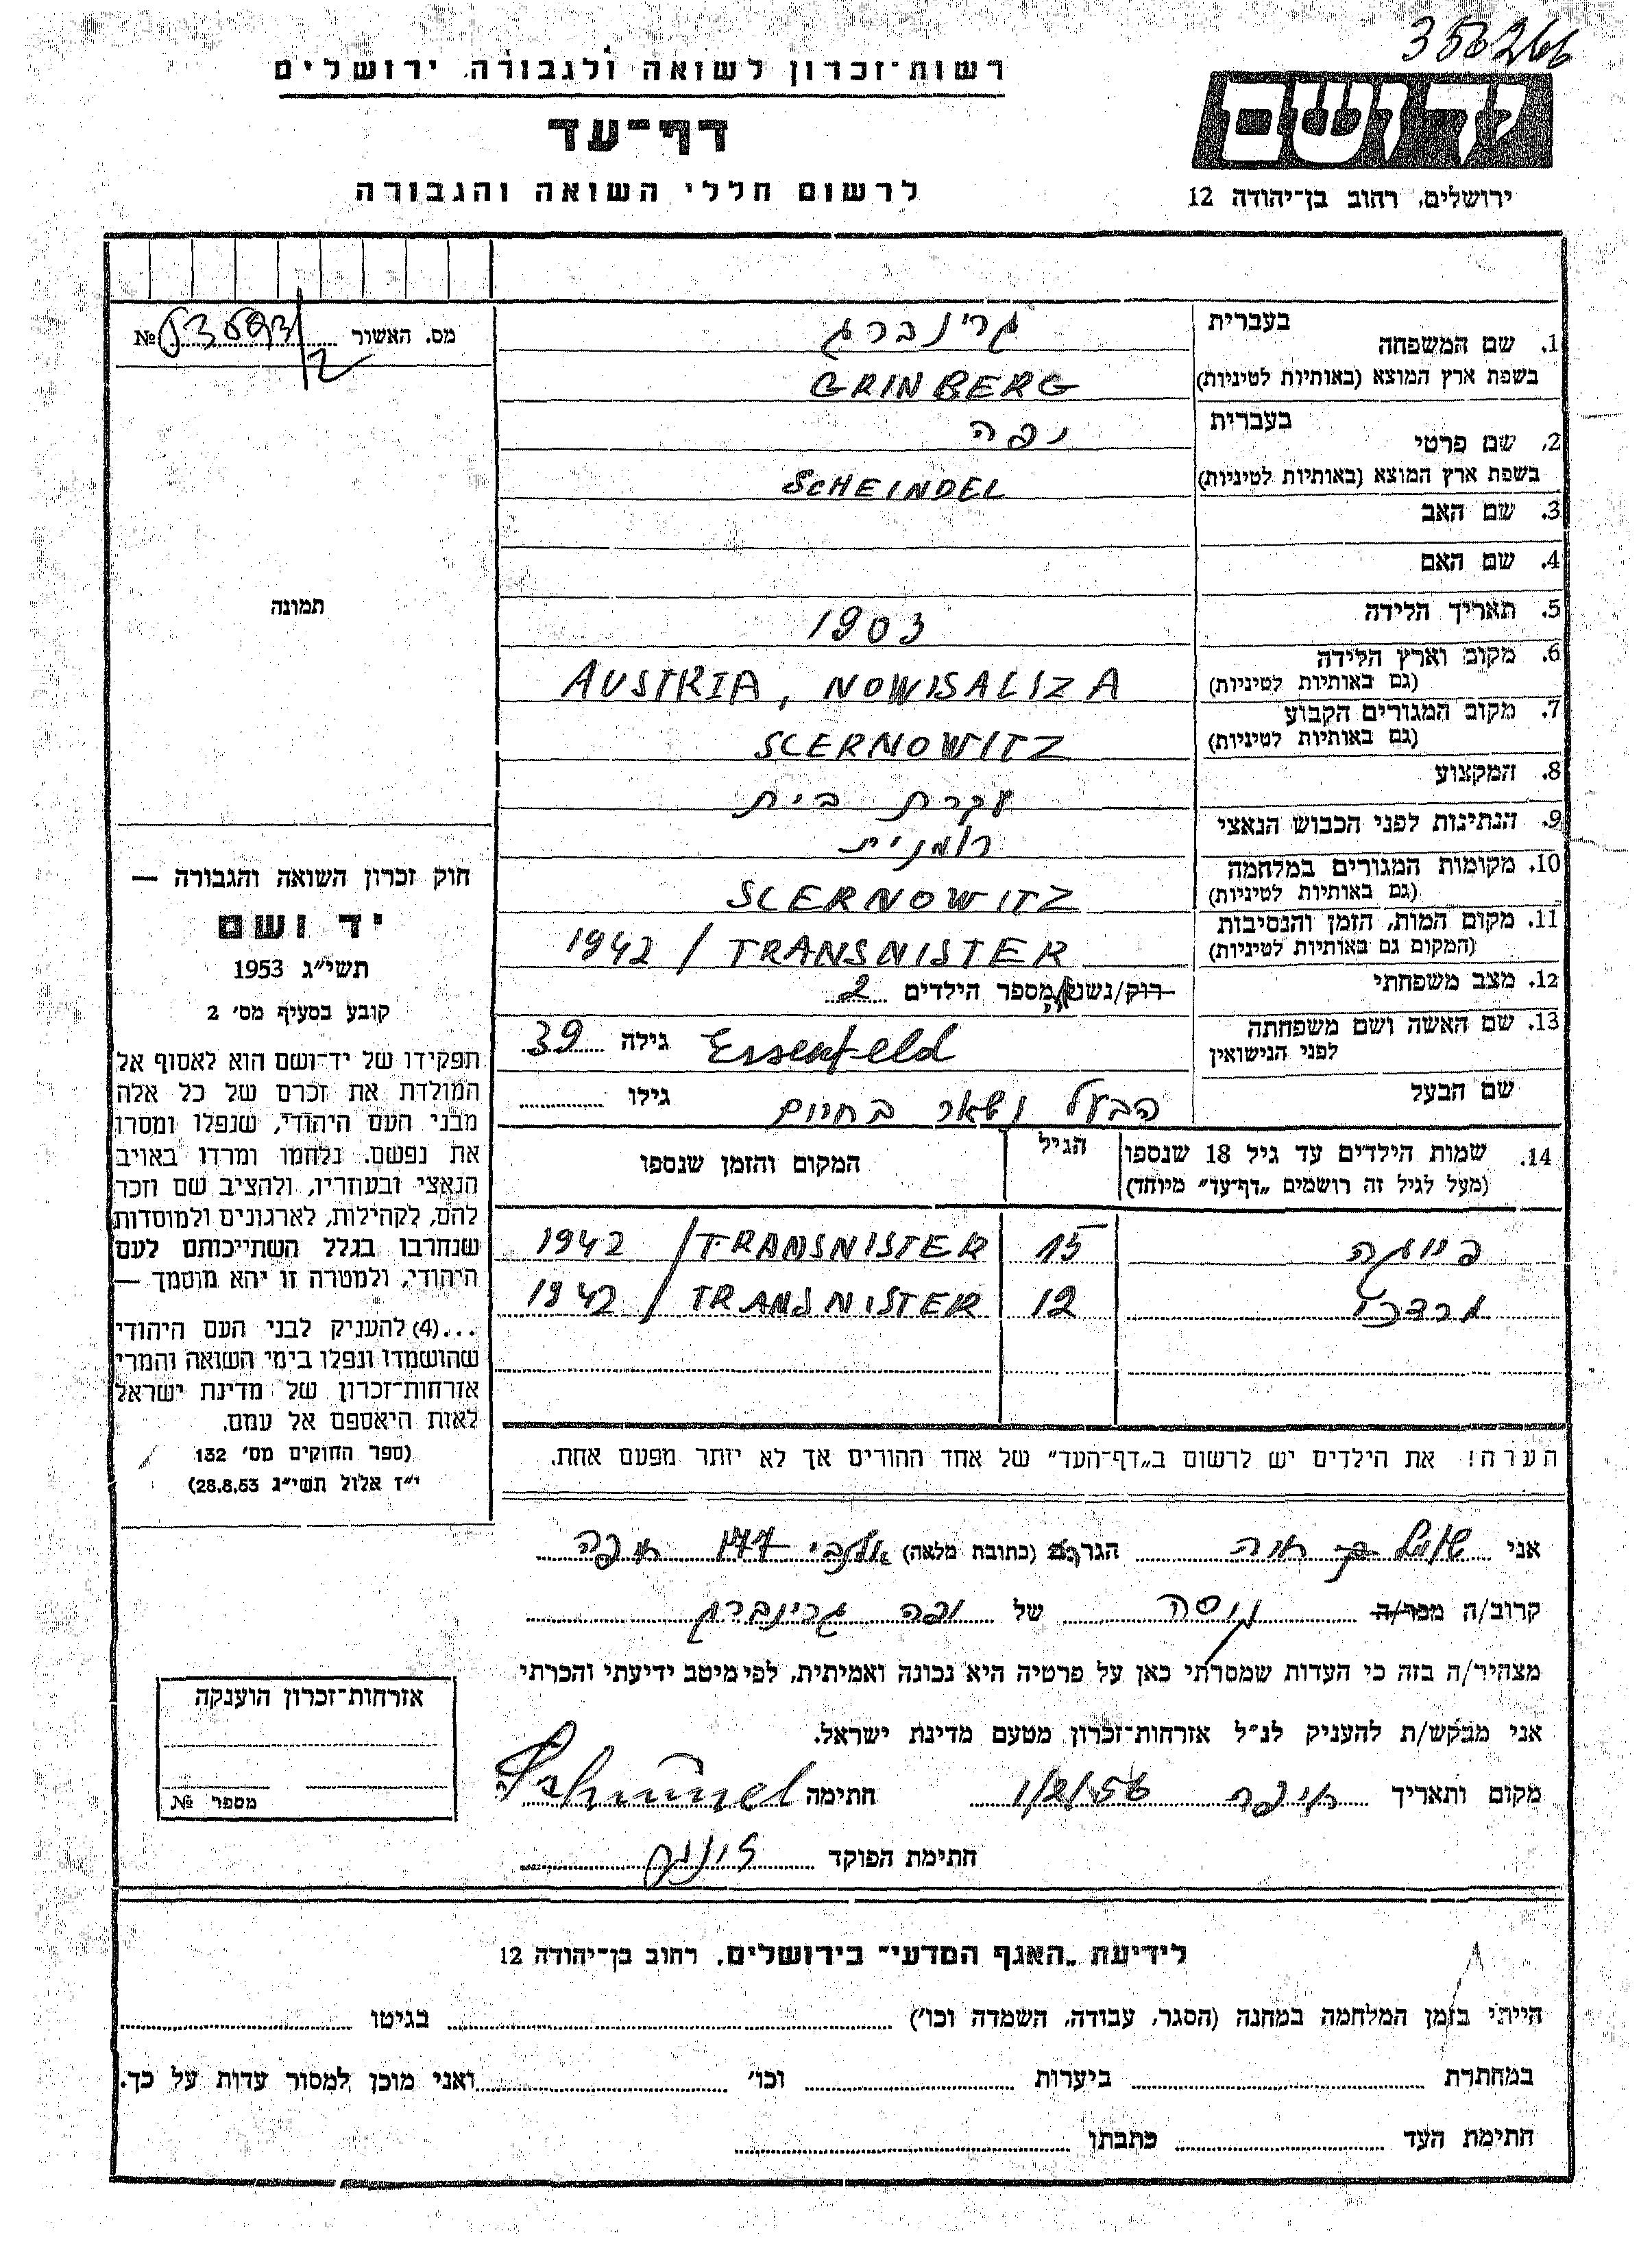 356266
רשות־זכרון לשואה ולגבורה, ירושלים
יד ושם
דף־עד
לרשום חללי השואה והגבורה
ירושלים, רחוב בן־יהודה 12
מס. האשור №
1. שם המשפחה
בעברית
גרינברג
בשפת ארץ המוצא (באותיות לטיניות)
GRINBERG
2. שם פרטי
בעברית
יפה
בשפת ארץ המוצא (באותיות לטיניות)
SCHEINDEL
3. שם האב
4. שם האם
5. תאריך הלידה
1903
6. מקום וארץ הלידה
(גם באותיות לטיניות)
AUSTRIA, NOWISALIZA
7. מקום המגורים הקבוע
(גם באותיות לטיניות)
SCERNOWITZ
8. המקצוע
עקרת בית
9. הנתינות לפני הכבוש הנאצי
רומנית
10. מקומות המגורים במלחמה
(גם באותיות לטיניות)
SCERNOWITZ
11. מקום המות, הזמן והנסיבות
(המקום גם באותיות לטיניות)
1942 / TRANSNISTER
12. מצב משפחתי
רוק/נשוי/אה מספר הילדים 2
13. שם האשה ושם משפחתה
לפני הנישואין
Essenfeld גילה 39
שם הבעל
הבעל נשאר בחיים גילו
14. שמות הילדים עד גיל 18 שנספו
(מעל לגיל זה רושמים „דף־עד" מיוחד)
הגיל
המקום והזמן שנספו
פייגה 15 1942 / TRANSNISTER
מרדכי 12 1942 / TRANSNISTER
הערה! את הילדים יש לרשום ב„דף־העד" של אחד ההורים אך לא יותר מפעם אחת.
תמונה
חוק זכרון השואה והגבורה —
יד ושם
תשי"ג 1953
קובע בסעיף מס' 2
תפקידו של יד־ושם הוא לאסוף אל
המולדת את זכרם של כל אלה
מבני העם היהודי, שנפלו ומסרו
את נפשם, נלחמו ומרדו באויב
הנאצי ובעוזריו, ולהציב שם וזכר
להם, לקהילות, לארגונים ולמוסדות
שנחרבו בגלל השתייכותם לעם
היהודי, ולמטרה זו יהא מוסמך —
...(4) להעניק לבני העם היהודי
שהושמדו ונפלו בימי השואה והמרי
אזרחות־זכרון של מדינת ישראל
לאות היאספם אל עמם.
(ספר החוקים מס' 132
י"ז אלול תשי"ג 28.8.53)
אני שמל חיה הגר (כתובת מלאה) אלנבי 177 חיפה
קרוב/ה מכר/ה גיסה של יפה גרינברג
מצהיר/ה בזה כי העדות שמסרתי כאן על פרטיה היא נכונה ואמיתית, לפי מיטב ידיעתי והכרתי
אני מבקש/ת להעניק לנ"ל אזרחות־זכרון מטעם מדינת ישראל.
מקום ותאריך חיפה 1/2/56 חתימה Schimel
חתימת הפוקד
אזרחות־זכרון הוענקה
מספר №
לידיעת „האגף המדעי" בירושלים, רחוב בן־יהודה 12
הייתי בזמן המלחמה במחנה (הסגר, עבודה, השמדה וכו') בגיטו
במחתרת ביערות וכו' ואני מוכן למסור עדות על כך.
חתימת העד כתבתו